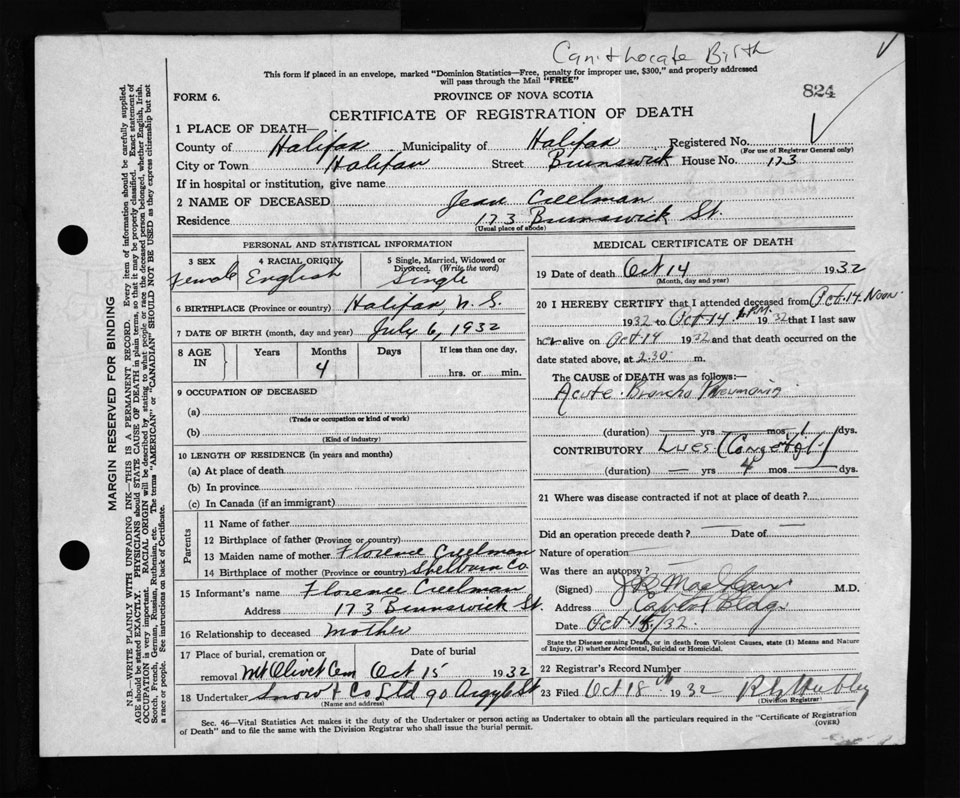 Can't Locate Birth
This form if placed in an envelope, marked "Dominion Statistics—Free, penalty for improper use, $300," and properly addressed
will pass through the Mail "FREE"
824
FORM 6.
PROVINCE OF NOVA SCOTIA
CERTIFICATE OF REGISTRATION OF DEATH
1 PLACE OF DEATH—
County of Halifax Municipality of Halifax Registered No.
(For use of Registrar General only)
City or Town Halifax Street Brunswick House No. 173
If in hospital or institution, give name
2 NAME OF DECEASED Jean Creelman
Residence 173 Brunswick St.
(Usual place of abode)
PERSONAL AND STATISTICAL INFORMATION
3 SEX Female
4 RACIAL ORIGIN English
5 Single, Married, Widowed or Divorced. (Write the word) Single
6 BIRTHPLACE (Province or country) Halifax, N. S.
7 DATE OF BIRTH (month, day and year) July 6, 1932
8 AGE IN Years Months 4 Days If less than one day, hrs. or min.
9 OCCUPATION OF DECEASED
(a)
(Trade or occupation or kind of work)
(b)
(Kind of industry)
10 LENGTH OF RESIDENCE (in years and months)
(a) At place of death
(b) In province
(c) In Canada (if an immigrant)
Parents
11 Name of father
12 Birthplace of father (Province or country)
13 Maiden name of mother Florence Creelman
14 Birthplace of mother (Province or country) Shelburn Co.
15 Informant's name Florence Creelman
Address 173 Brunswick St.
16 Relationship to deceased Mother
17 Place of burial, cremation or removal Mt Olivet Cem Date of burial Oct 15 1932
18 Undertaker Snow & Co Ltd 90 Argyle St
(Name and address)
MEDICAL CERTIFICATE OF DEATH
19 Date of death Oct 14 1932
(Month, day and year)
20 I HEREBY CERTIFY that I attended deceased from Oct. 14. Noon
1932 to Oct. 14 P.M. 1932 that I last saw
her alive on Oct. 14 1932 and that death occurred on the
date stated above, at 2.30 m.
The CAUSE of DEATH was as follows:—
Acute Broncho Pneumonia
(duration) — yrs — mos 1 /dys.
CONTRIBUTORY Lues (Congenital)
(duration) — yrs 4 mos — dys.
21 Where was disease contracted if not at place of death?
Did an operation precede death? — Date of —
Nature of operation
Was there an autopsy?
(Signed) M.D.
Address Bldg
Date Oct 15/32.
State the Disease causing Death, or in death from Violent Causes, state (1) Means and Nature
of Injury, (2) whether Accidental, Suicidal or Homicidal.
22 Registrar's Record Number
23 Filed Oct 18 1932
(Division Registrar)
Sec. 46—Vital Statistics Act makes it the duty of the Undertaker or person acting as Undertaker to obtain all the particulars required in the "Certificate of Registration
of Death" and to file the same with the Division Registrar who shall issue the burial permit.
(OVER)
MARGIN RESERVED FOR BINDING
N.B.—WRITE PLAINLY WITH UNFADING INK—THIS IS A PERMANENT RECORD. Every item of information should be carefully supplied.
AGE should be stated EXACTLY. PHYSICIANS should STATE CAUSE OF DEATH in plain terms, so that it may be properly classified. Exact statement of
OCCUPATION is very important. RACIAL ORIGIN will be described by stating to what people or race the deceased person belonged, whether English, Irish,
Scotch, French, German, Russian, Ruthenian, etc. The terms "AMERICAN" or "CANADIAN" SHOULD NOT BE USED as they express citizenship but not
a race or people. See instructions on back of Certificate.